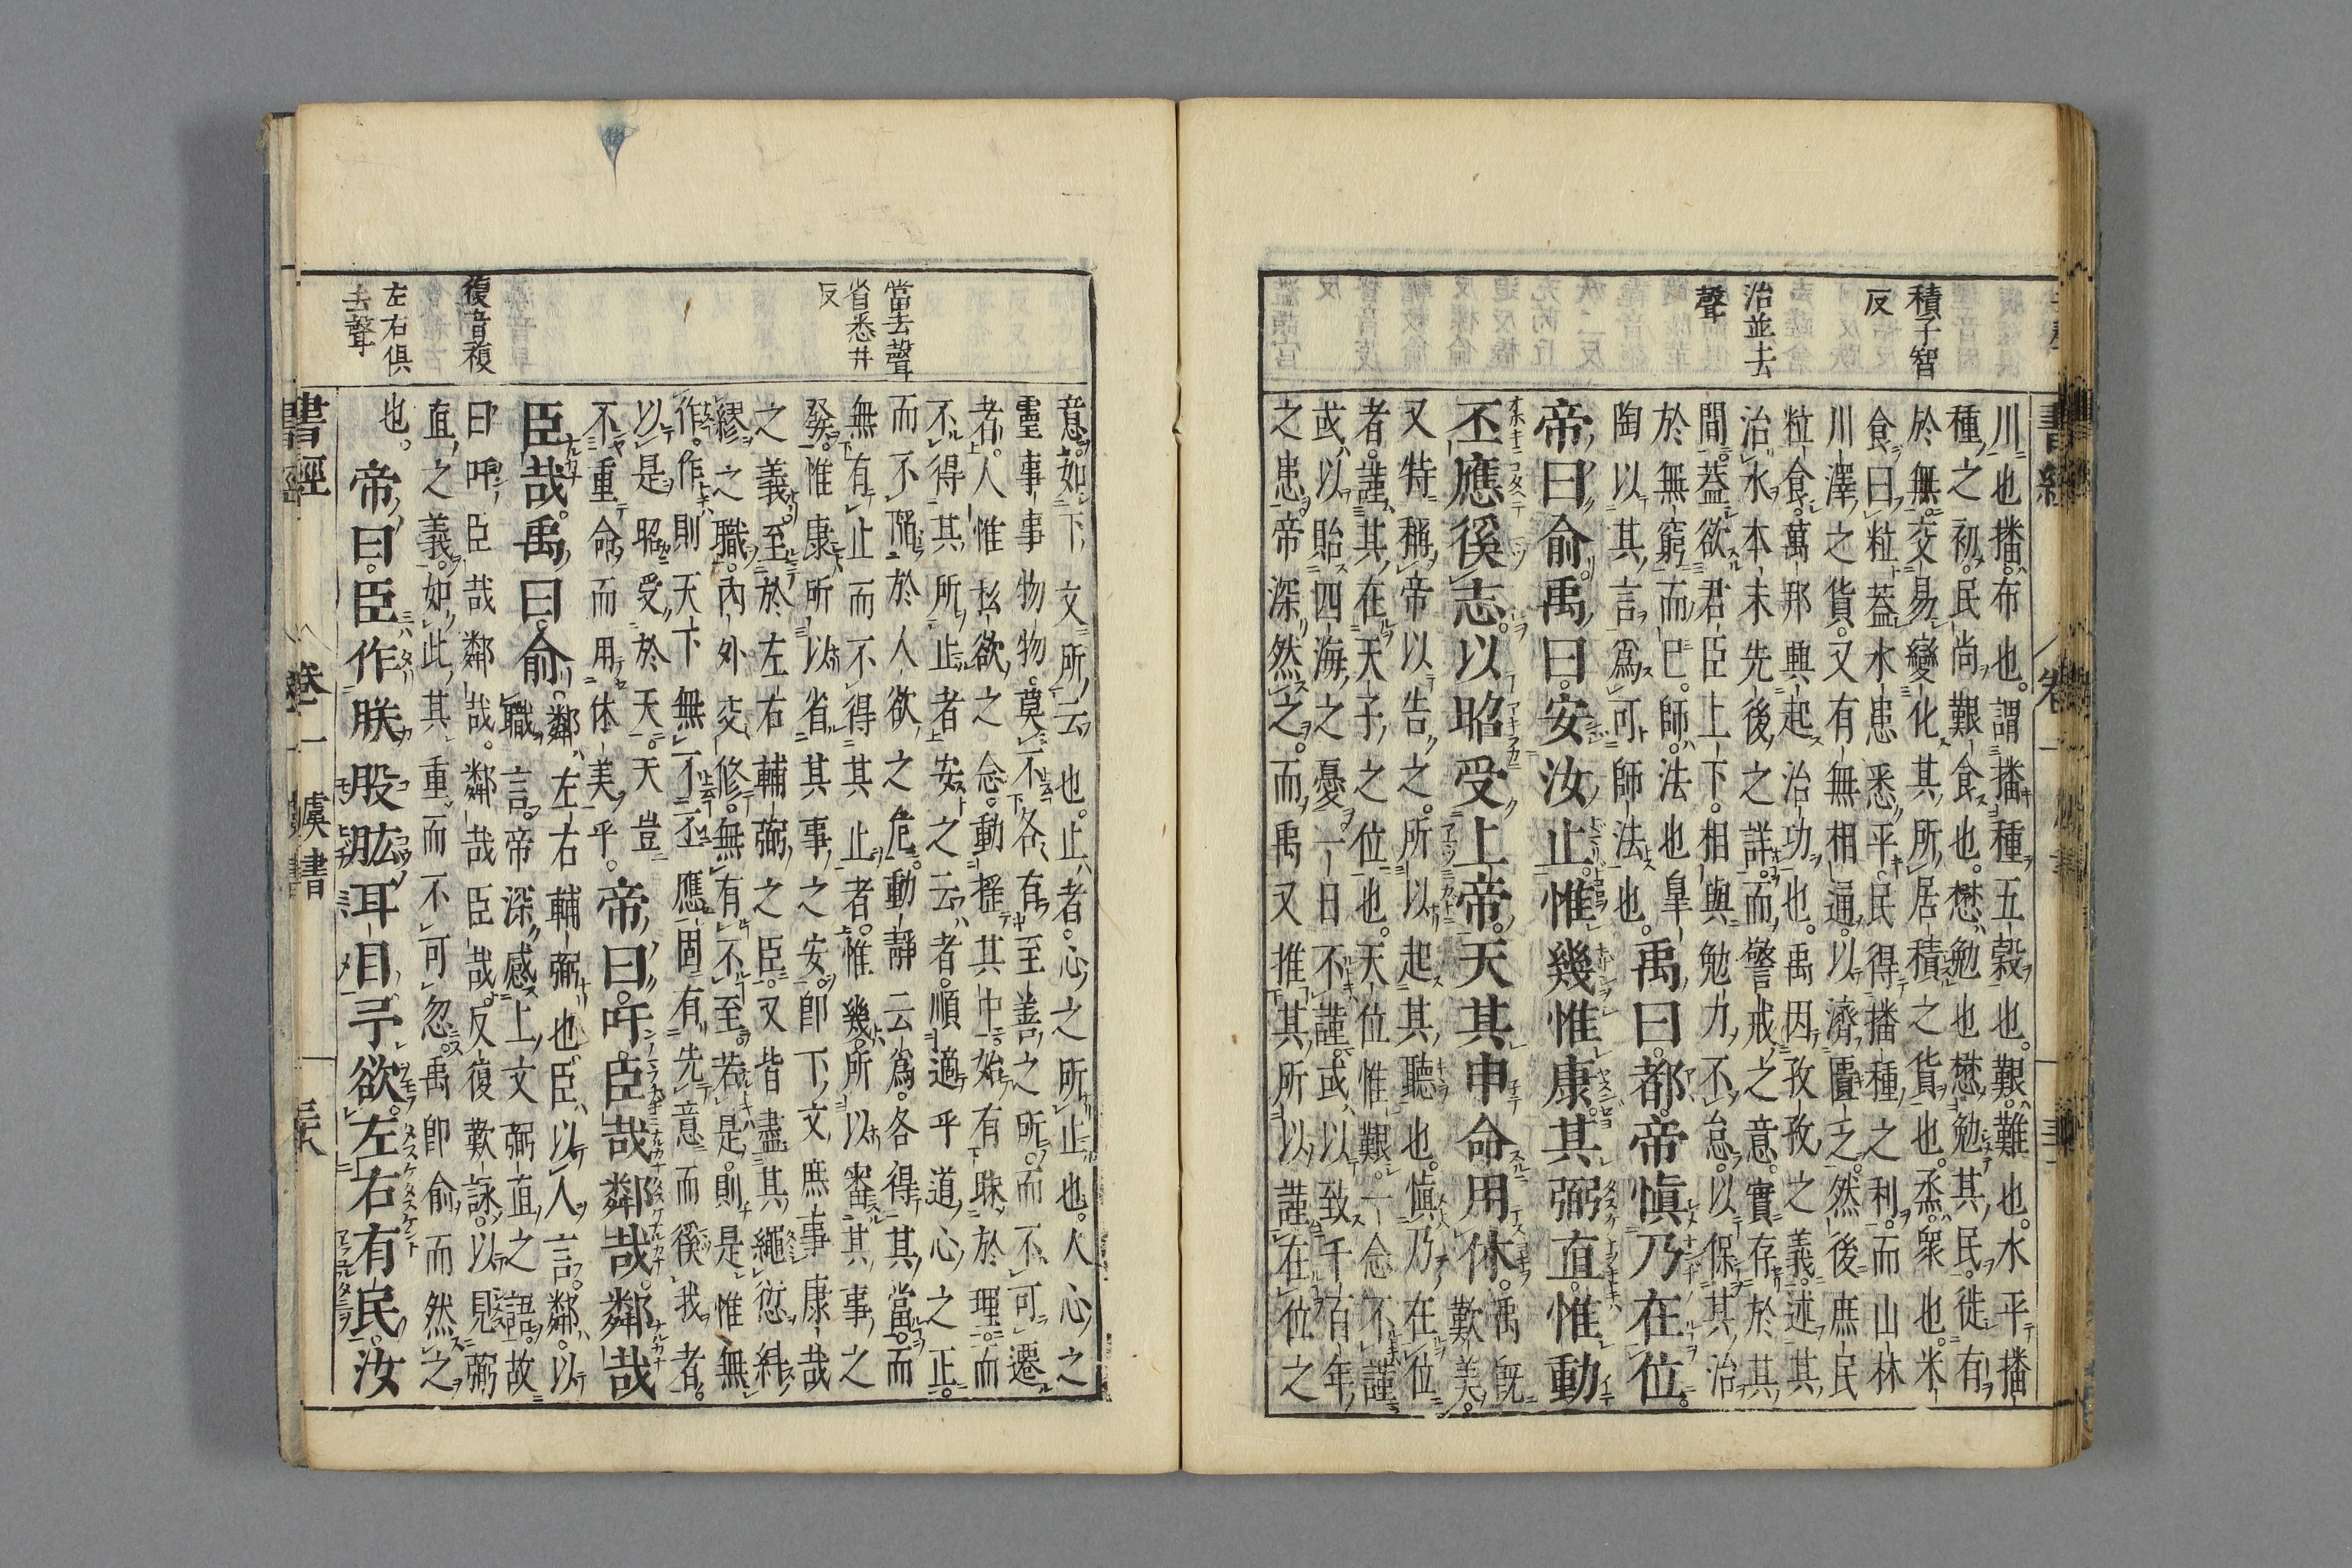 積子智
反
治並去
聲
川也播布也謂播種五穀也艱難也水平播
種之初民尚艱食也懋勉也懋勉其民徙有
於無交易變化其所居積之貨也烝衆也米
食曰粒蓋水患悉平民得播種之利而山林
川澤之貨又有無相通以濟匱乏然後庶民
粒食萬邦興起治功也禹因孜孜之義述其
治水本末先後之詳而警戒之意實存於其
間蓋欲君臣上下相與勉力不怠以保其治
於無窮而已師法也皐
陶以其言爲可師法也禹曰都帝愼乃在位
帝曰俞禹曰安汝止惟幾惟康其弼直惟動
丕應徯志以昭受上帝天其申命用休禹既歎美
又特稱帝以告之所以起其聽也愼乃在位
者謹其在天子之位也天位惟艱一念不謹
或以貽四海之憂一日不謹或以致千百年
之患帝深然之而禹又推其所以謹在位之
當去聲
省悉井
反
復音複
左右俱
去聲
意如下文所云也止者心之所止也人心之
靈事事物物莫不各有至善之所而不可遷
者人惟私欲之念動搖其中始有昧於理而
不得其所止者安之云者順適乎道心之正
而不陷於人欲之危動靜云爲各得其當而
無有止而不得其止者惟幾所以審其事之
發惟康所以省其事之安即下文庶事康哉
之義至於左右輔弼之臣又皆盡其繩愆糾
繆之職內外交修無有不至若是則是惟無
作作則天下無不丕應固有先意而徯我者
以是昭受於天天豈
不重命而用休美乎帝曰吁臣哉鄰哉鄰哉
臣哉禹曰俞鄰左右輔弼也臣以人言鄰以
職言帝深感上文弼直之語故
曰吁臣哉鄰哉鄰哉臣哉反復歎詠以見弼
直之義如此其重而不可忽禹即俞而然之
也帝曰臣作朕股肱耳目予欲左右有民汝
書經
卷一
虞書